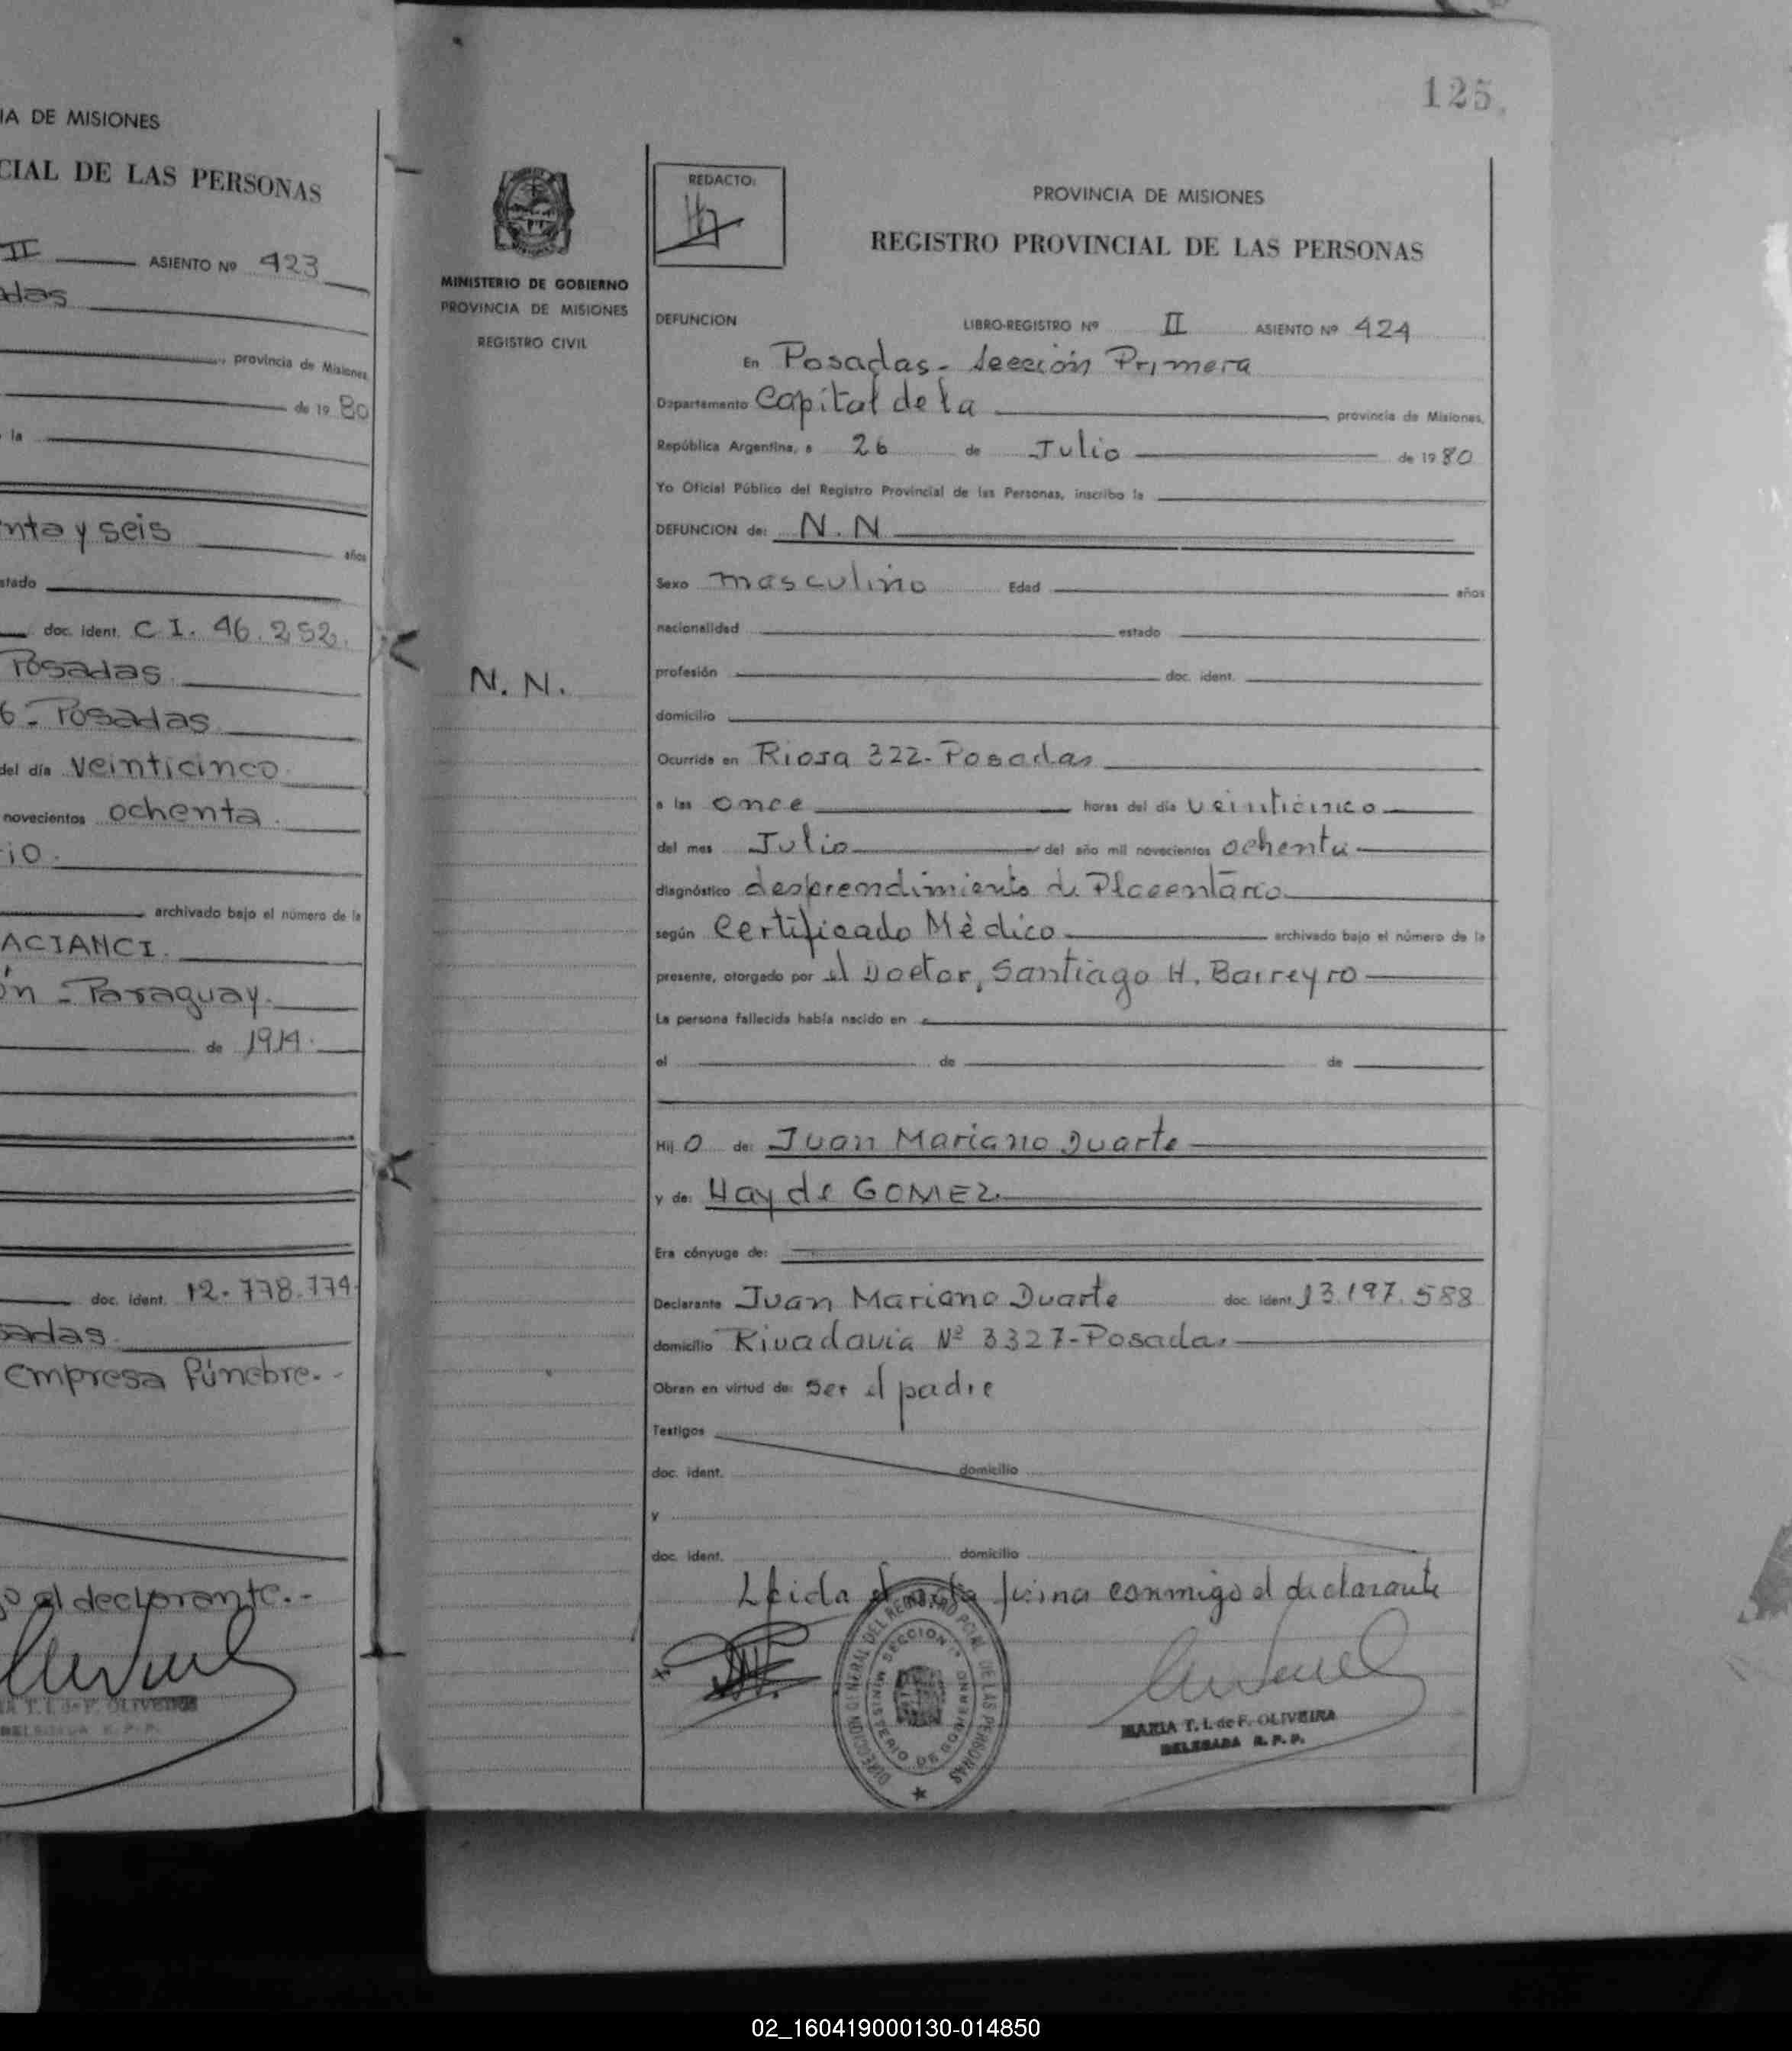 IA DE MISIONES
CIAL DE LAS PERSONAS
II ASIENTO Nº 423
adas
provincia de Misiones
de 19 80
la
nta y seis años
stado
doc. ident. C I. 46.252.
Posadas
6 - Posadas
del día veinticinco
novecientos ochenta
io.
archivado bajo el número de la
ACIANCI.
ón - Paraguay.
de 1914.
doc. ident. 12.778.774
sadas
empresa fúnebre.-
go el declarante.-
A T. I. de F. OLIVEIRA
DELEGADA R. P. P.
125
MINISTERIO DE GOBIERNO
PROVINCIA DE MISIONES
REGISTRO CIVIL
N. N.
REDACTO:
PROVINCIA DE MISIONES
REGISTRO PROVINCIAL DE LAS PERSONAS
DEFUNCION LIBRO-REGISTRO Nº II ASIENTO Nº 424
En Posadas - Sección Primera
Departamento Capital de la provincia de Misiones,
República Argentina, a 26 de Julio de 19 80
Yo Oficial Público del Registro Provincial de las Personas, inscribo la
DEFUNCION de: N. N
Sexo masculino Edad años
nacionalidad estado
profesión doc. ident.
domicilio
Ocurrida en Rioja 322 - Posadas
a las once horas del día veinticinco
del mes Julio del año mil novecientos ochenta
diagnóstico desprendimiento de Placentário
según Certificado Mèdico archivado bajo el número de la
presente, otorgado por el Doctor, Santiago H. Barreyro
La persona fallecida había nacido en
el de de
Hij o de: Juan Mariano Duarte
y de: Hayde GOMEZ.
Era cónyuge de:
Declarante Juan Mariano Duarte doc. ident. 13.197.588
domicilio Rivadavia Nº 3327 - Posadas
Obran en virtud de: ser el padre
Testigos
doc. ident. domicilio
y
doc. ident. domicilio
Leida el acta firma conmigo el declarante
DIRECCION GENERAL DEL REGISTRO PCIAL DE LAS PERSONAS
MINISTERIO DE GOBIERNO SECCION 1ª
MARIA T. I. de F. OLIVEIRA
DELEGADA R. P. P.
02_160419000130-014850